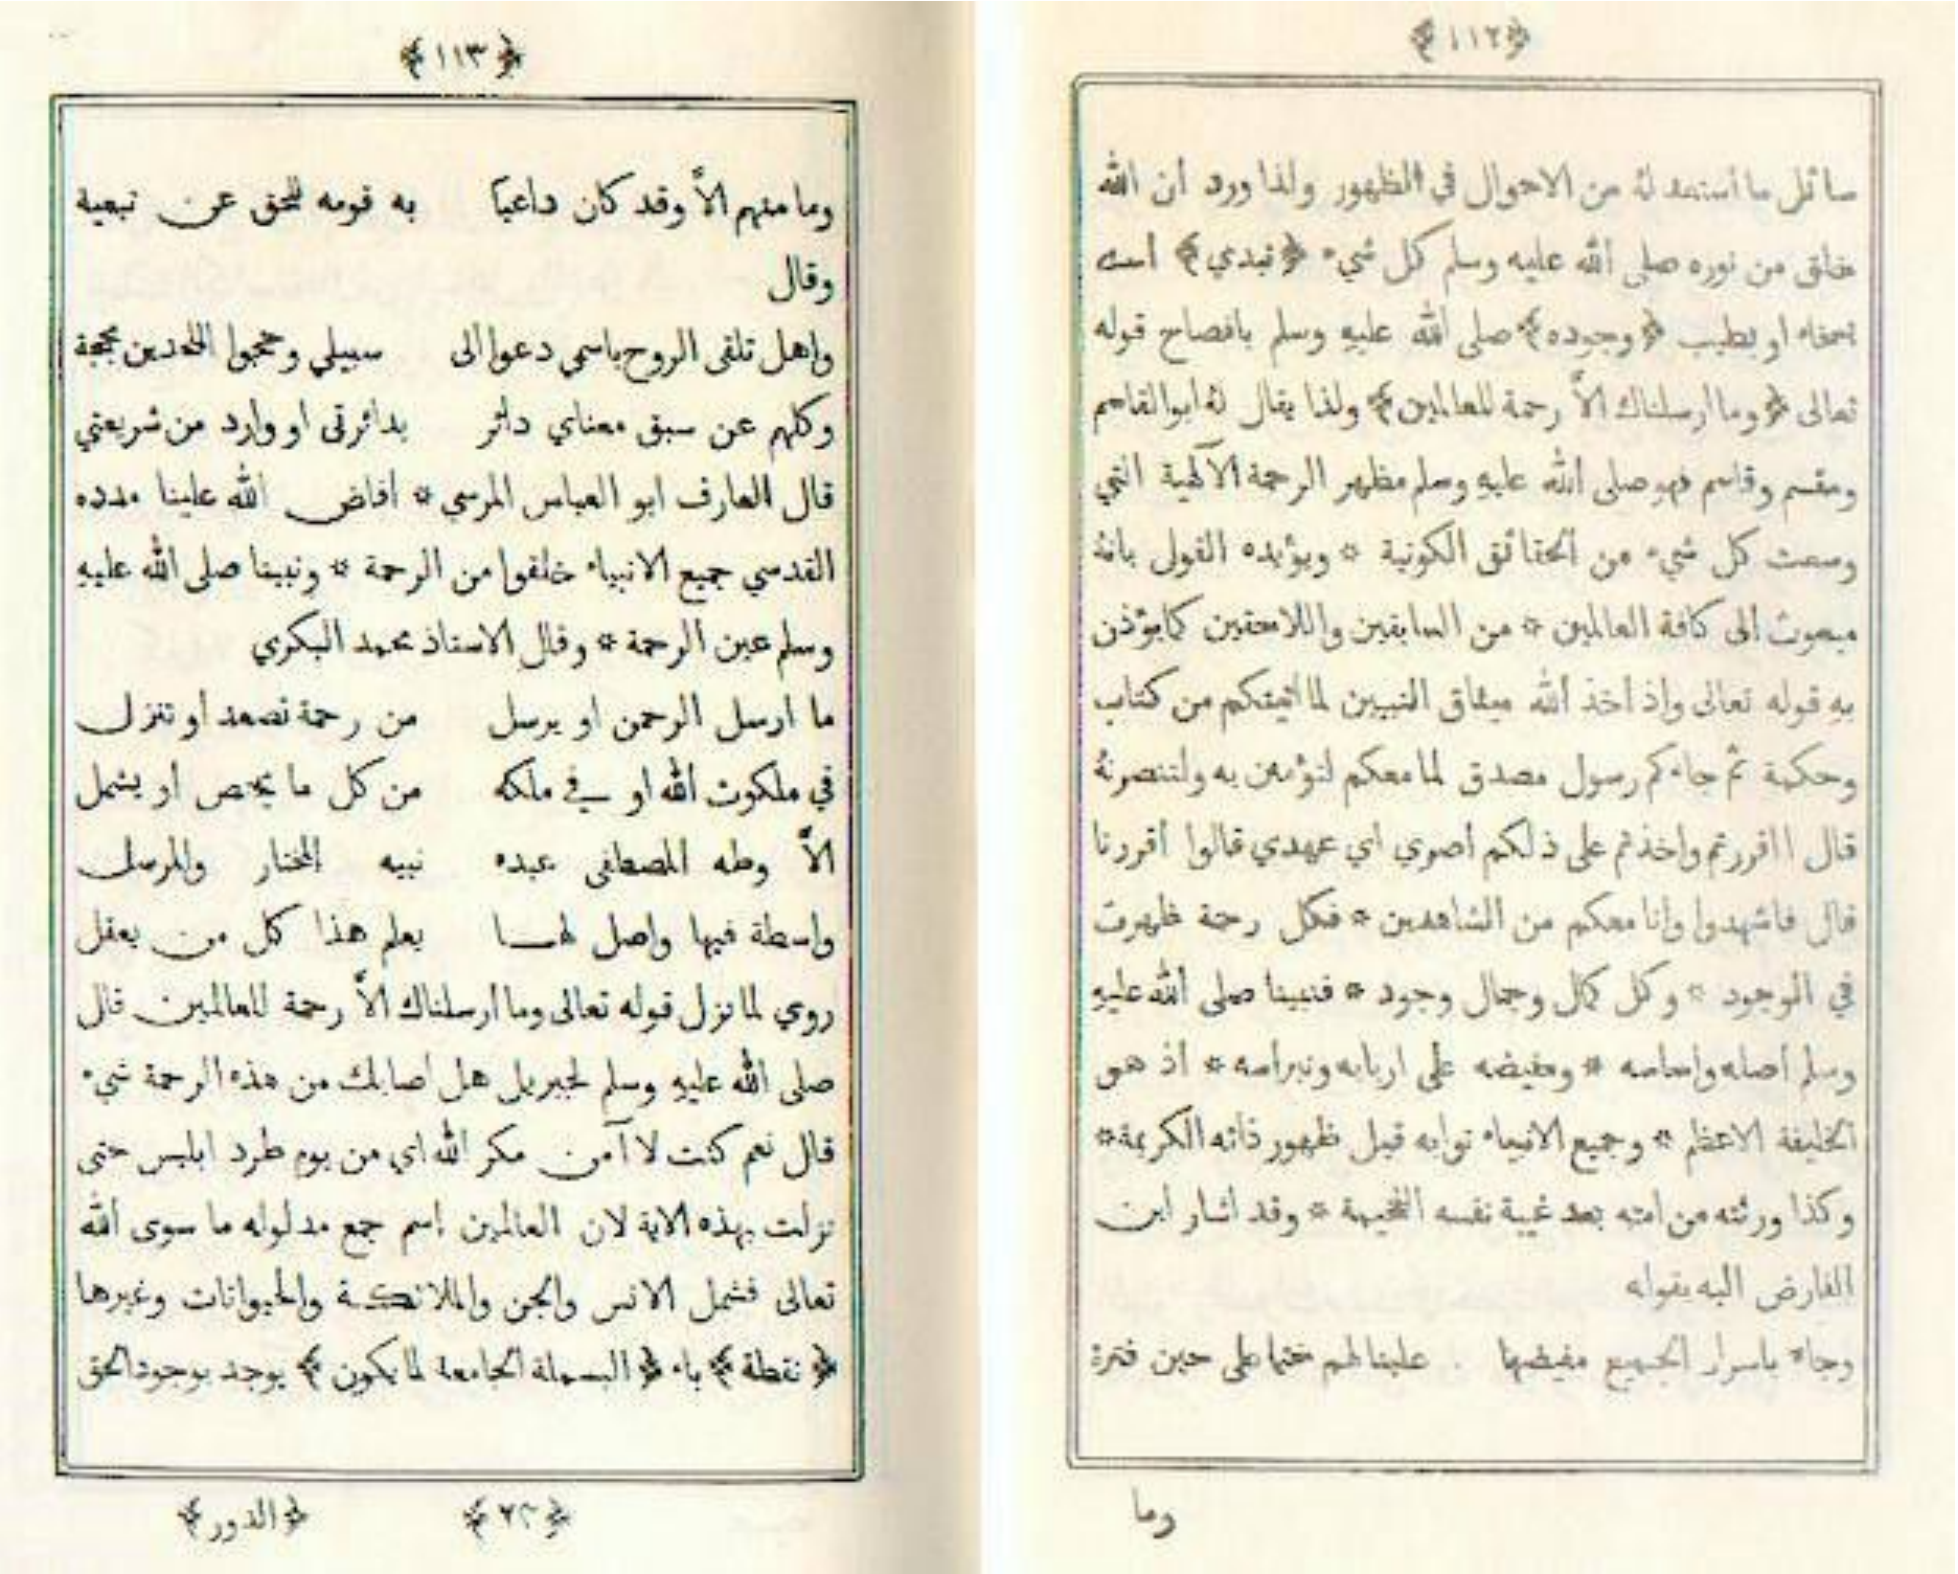 ﴿١١٢﴾
سائل ما أستعد له من الاحوال في الظهور ولذا ورد أن الله
خلق من نوره صلى ألله عليه وسلم كل شيء ﴿تبدي﴾ أسه
بسخاء او بطيب ﴿وجوده﴾ صلى ألله عليهِ وسلم بافصاح قوله
تعالى ﴿وما ارسلناك الاَّ رحمة للعالمين﴾ ولذا يقال لهُ ابوالقاسم
ومقسم وقاسم فهو صلى ألله عليهِ وسلم مظهر الرحمة الآلهية التي
وسعت كل شيء من ألحقائق الكونية * ويؤيده القول بانهُ
مبعوث الى كافة العالمين * من السابقين واللاحقين كما يؤذن
به قوله تعالى واذ أخذ ألله ميثاق النبيين لما اتيتكم من كتاب
وحكمة ثم جاءكم رسول مصدق لما معكم لتؤمنن به ولتنصرنهُ
قال ااقررتم واخذتم على ذلكم أصري اي عهدي قالوا أقررنا
قال فاشهدوا وأنا معكم من الشاهدين * فكل رحمة ظهرت
في الوجود * وكل كمال وجمال وجود * فنبينا صلى ألله عليهِ
وسلم أصله واساسه * ومفيضه على اربابه ونبراسه * أذ هو
الخليفة الاعظم * وجميع الانبياء نوابه قبل ظهور ذاته الكريمة *
وكذا ورثته من امته بعد غيبة نفسه الفخيمة * وقد أشار ابن
الفارض اليه بقوله
وجاء باسرار الجميع مفيضها علينا لهم ختما على حين فترة
وما
﴿١١٣﴾
وما منهم الاَّ وقد كان داعيًا به قومه للحق عن تبعية
وقال
واهل تلقى الروح باسمي دعوا الى سبيلي وحججوا الملحدين بحجة
وكلهم عن سبق معناي دائر بدائرتي او وارد من شريعتي
قال العارف ابو العباس المرسي * أفاض ألله علينا مدده
القدسي جميع الانبياء خلقوا من الرحمة * ونبينا صلى الله عليهِ
وسلم عين الرحمة * وقال الاستاذ محمد البكري
ما ارسل الرحمن او يرسل من رحمة تصعد أو تنزل
في ملكوت الله او في ملكه من كل ما يختص أو يشمل
الاَّ وطه المصطفى عبده نبيه المختار والمرسل
واسطة فيها واصل لها يعلم هذا كل من يعقل
روي لما نزل قوله تعالى وما أرسلناك الاَّ رحمة للعالمين قال
صلى الله عليهِ وسلم لجبريل هل اصابك من هذه الرحمة شيء
قال نعم كنت لا آمن مكر الله اي من يوم طرد ابليس حتى
نزلت بهذه الاية لان العالمين إسم جمع مدلوله ما سوى الله
تعالى فشمل الانس والجن والملائكة والحيوانات وغيرها
﴿نقطة﴾ باء ﴿البسملة الجامعة لما يكون﴾ يوجد بوجود الحق
﴿٢٢﴾ ﴿الدور﴾